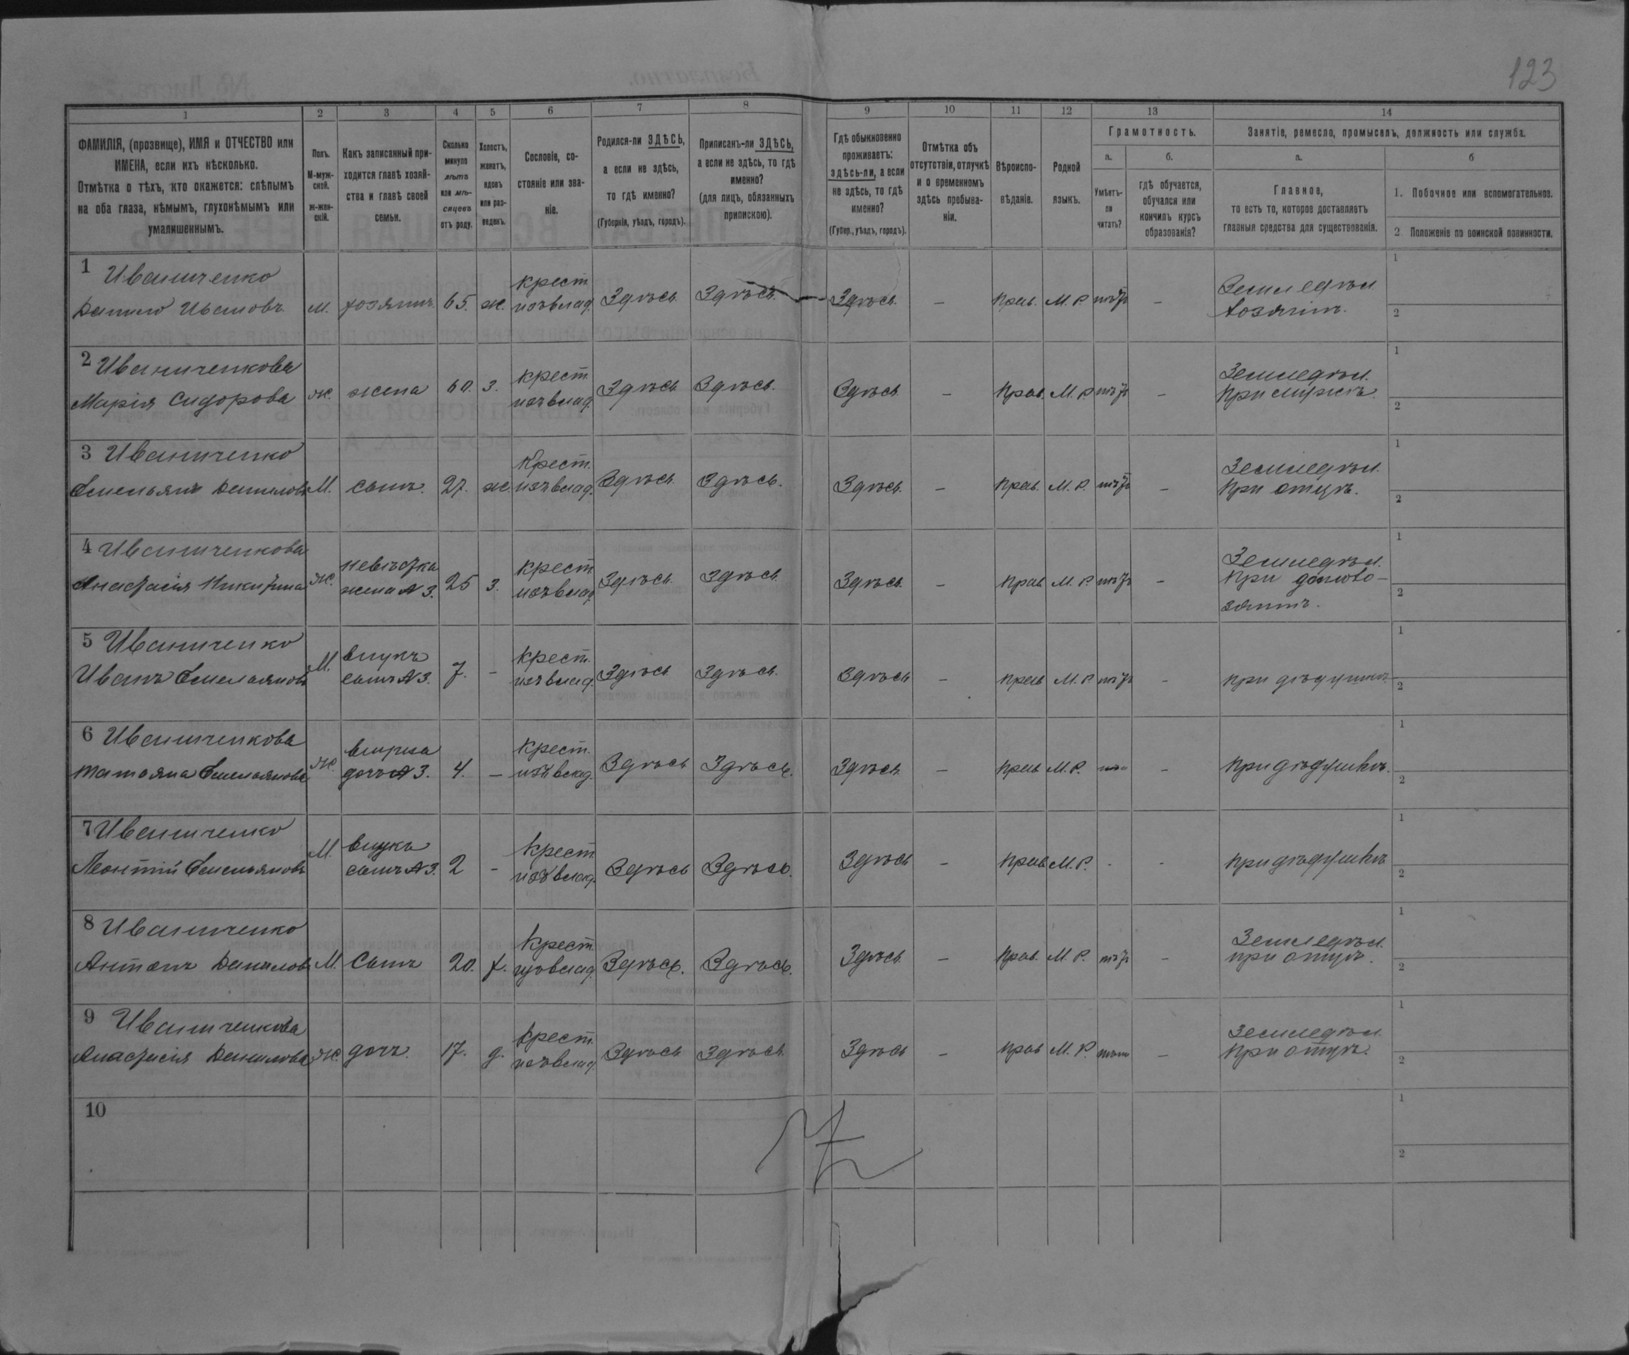 123
1 2 3 4 5 6 7 8 9 10 11 12 13 14
ФАМИЛІЯ, (прозвище), ИМЯ и ОТЧЕСТВО или
ИМЕНА, если ихъ нѣсколько.
Отмѣтка о тѣхъ, кто окажется: слѣпымъ
на оба глаза, нѣмымъ, глухонѣмымъ или
умалишеннымъ.
Полъ.
М-муж-
ской.
ж-жен-
скій.
Какъ записанный при-
ходится главѣ хозяй-
ства и главѣ своей
семьи.
Сколько
минуло
лѣтъ
или мѣ-
сяцевъ
отъ роду.
Холостъ,
женатъ,
вдовъ
или раз-
веденъ.
Сословіе, со-
стояніе или зва-
ніе.
Родился-ли ЗДѢСЬ,
а если не здѣсь,
то гдѣ именно?
(Губернія, уѣздъ, городъ).
Приписанъ-ли ЗДѢСЬ,
а если не здѣсь, то гдѣ
именно?
(для лицъ, обязанныхъ
припискою).
Гдѣ обыкновенно
проживаетъ:
здѣсь-ли, а если
не здѣсь, то гдѣ
именно?
(Губер., уѣздъ, городъ).
Отмѣтка объ
отсутствіи, отлучкѣ
и о временномъ
здѣсь пребыва-
ніи.
Вѣроиспо-
вѣданіе.
Родной
языкъ.
Грамотность.
а.
Умѣетъ-
ли
читать?
б.
гдѣ обучается,
обучался или
кончилъ курсъ
образованія?
Занятіе, ремесло, промыселъ, должность или служба.
а.
Главное,
то есть то, которое доставляетъ
главныя средства для существованія.
б
1. Побочное или вспомогательное.
2 Положеніе по воинской повинности.
1 Иваниченко крест. Земледѣл.
Данило Ивановъ М. хозяинъ 65. ж. изъ влад. Здѣсь Здѣсь Здѣсь — Прав. М.Р. — хозяинъ.
2 Иваниченкова крест. Земледѣл.
Марія Сидорова ж. жена 60. з. изъ влад. Здѣсь Здѣсь Здѣсь — Прав. М.Р. — При мужѣ.
3 Иваниченко Крест. Земледѣл.
Емельянъ Даниловъ М. сынъ. 27. ж. изъ влад. Здѣсь Здѣсь. Здѣсь — Прав. М.Р. — При отцѣ.
4 Иваниченкова невѣстка крест. Земледѣл.
Анастасія Никитина ж. жена №3. 25 з. изъ влад. Здѣсь Здѣсь Здѣсь — Прав. М.Р. — При домово-
5 Иваниченко внукъ крест.
Иванъ Емельяновъ М. сынъ №3. 7. - изъ влад. Здѣсь Здѣсь Здѣсь — Прав. М.Р. — при дѣдушкѣ
6 Иваниченкова внучка крест.
Татьяна Емельянова ж. дочь №3. 4. — изъ влад. Здѣсь Здѣсь. Здѣсь — Прав. М.Р. — при дѣдушкѣ.
7 Иваниченко внукъ крест
Леонтій Емельяновъ М. сынъ №3. 2 - изъ влад. Здѣсь Здѣсь. Здѣсь — Прав. М.Р. - - при дѣдушкѣ
8 Иваниченко крест. Земледѣл.
Антонъ Даниловъ М. Сынъ 20. х. изъ влад. Здѣсь. Здѣсь. Здѣсь — Прав. М.Р. — при отцѣ.
9 Иваниченкова крест. Земледѣл.
Анастасія Данилова ж. дочь. 17. д. изъ влад. Здѣсь Здѣсь Здѣсь — Прав. М.Р. — При отцѣ.
10
1
2